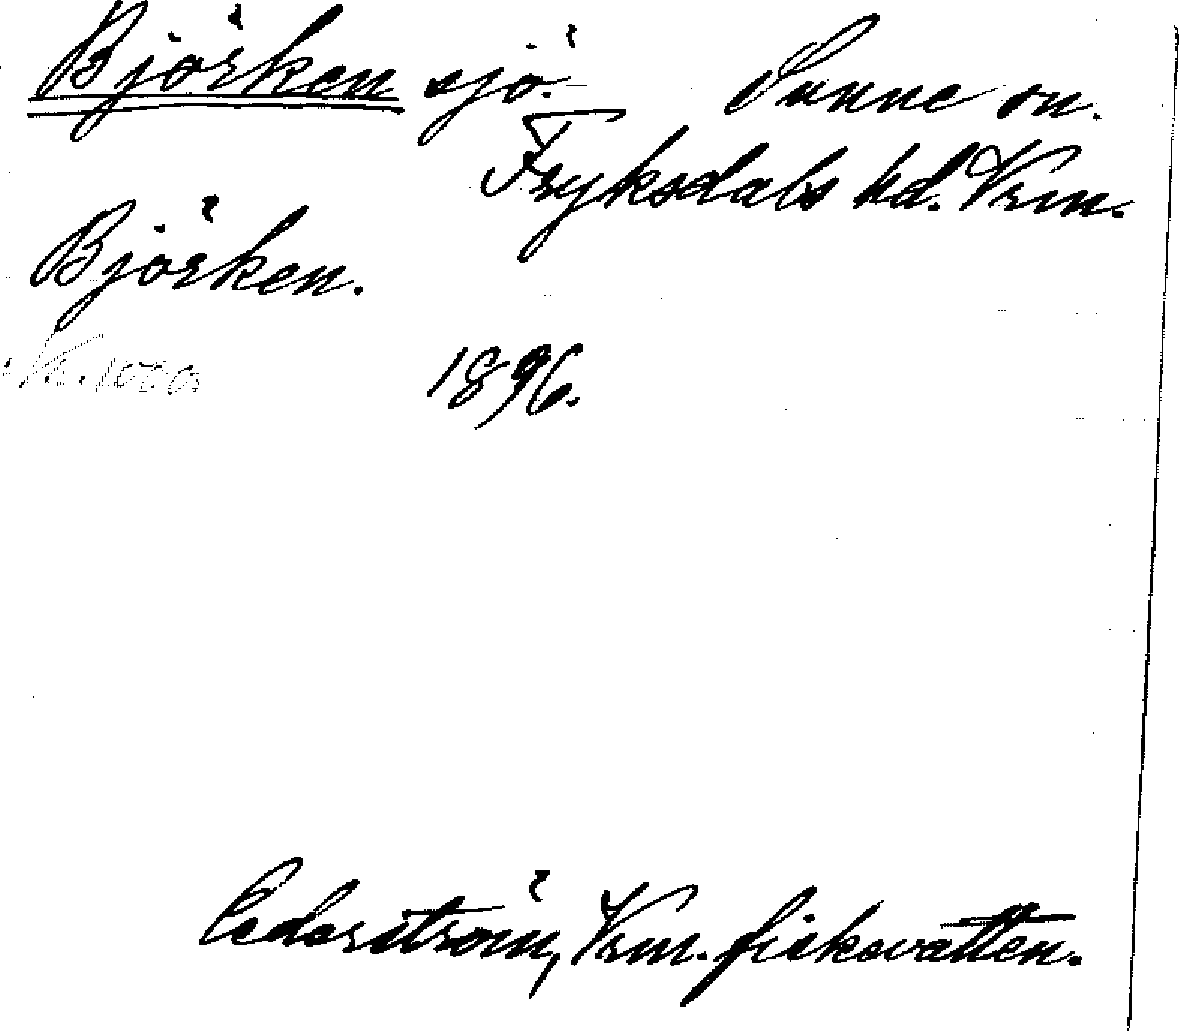 Björken sjö. Sunne sn.
Fryksdals hd. Vrm.
Björken.
1896.
Cederström, Vrm. fiskevatten.